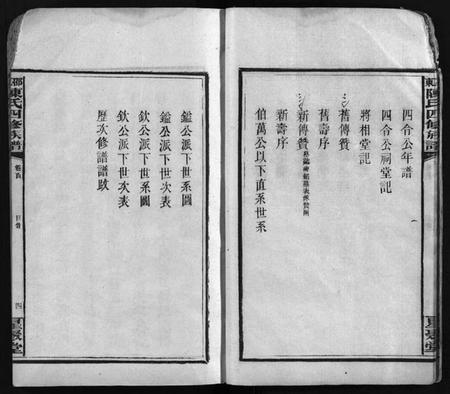 四合公年譜
四合公祠堂記
將相堂記
舊傳贊
舊壽序
新傳贊
新壽序
伯萬公以下直系世系
鑑公派下世系圖
鑑公派下世次表
欽公派下世系圖
欽公派下世次表
歷次修譜譜跋
陳氏四修族譜
卷首
目録
四
星聚堂